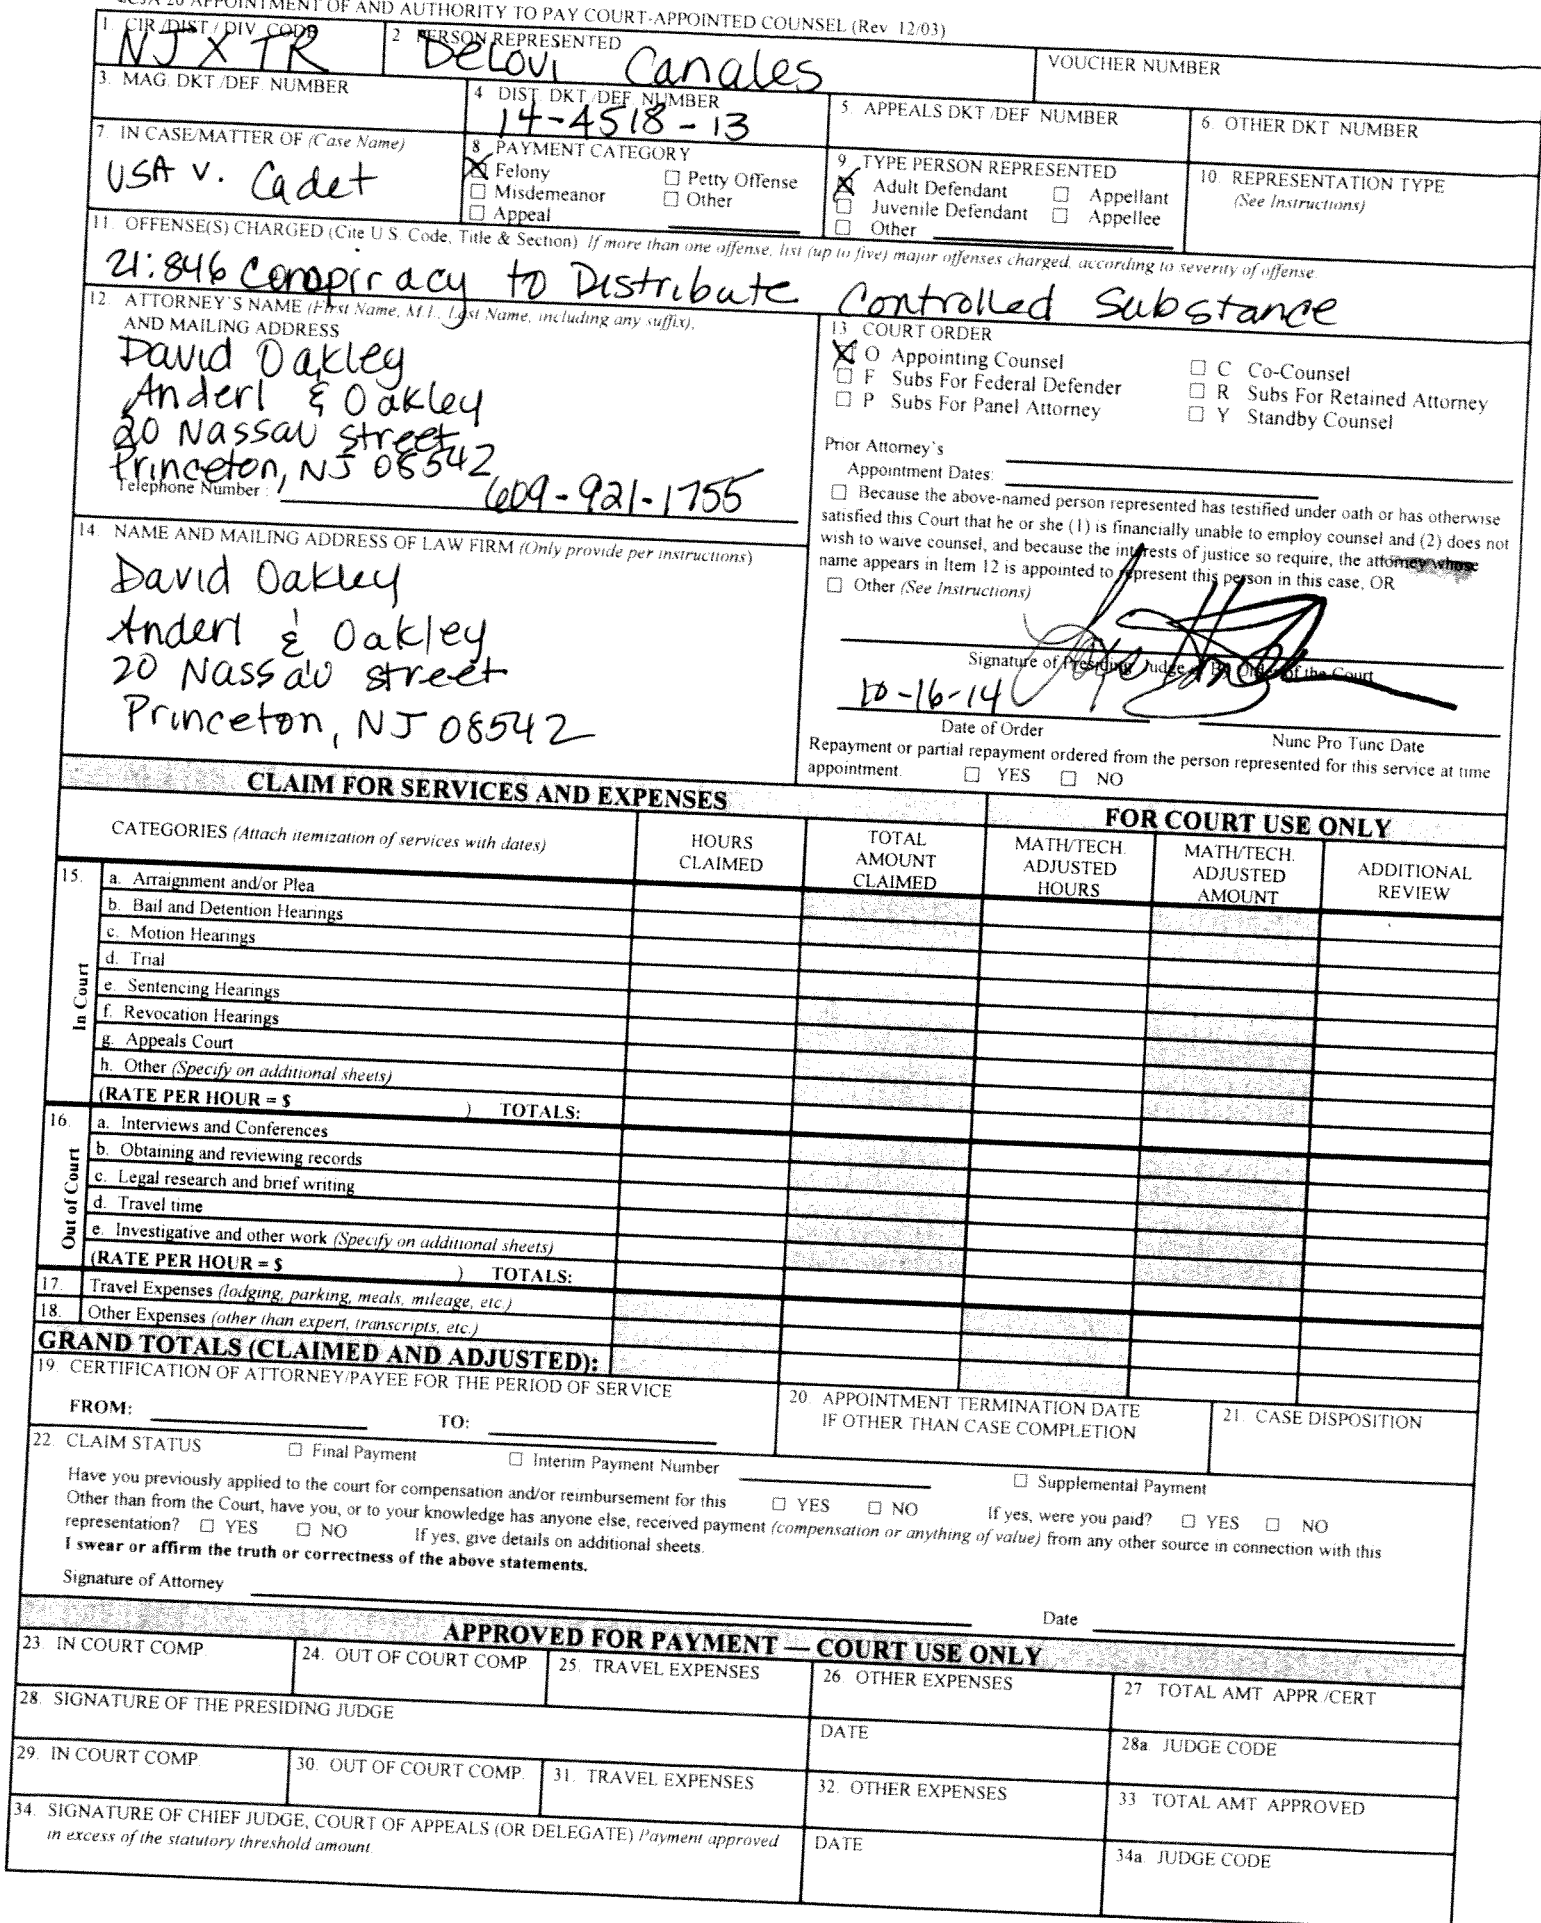 CJA 20 APPOINTMENT OF AND AUTHORITY TO PAY COURT-APPOINTED COUNSEL (Rev 12/03)
1. CIR./DIST./DIV. CODE
NJXTR
2 PERSON REPRESENTED
Delovi Canales
VOUCHER NUMBER
3. MAG. DKT./DEF. NUMBER
4 DIST. DKT./DEF. NUMBER
14-4518-13
5. APPEALS DKT./DEF. NUMBER
6. OTHER DKT. NUMBER
7. IN CASE/MATTER OF (Case Name)
USA v. Cadet
8 PAYMENT CATEGORY
☒ Felony ☐ Petty Offense
☐ Misdemeanor ☐ Other
☐ Appeal
9. TYPE PERSON REPRESENTED
☒ Adult Defendant ☐ Appellant
☐ Juvenile Defendant ☐ Appellee
☐ Other
10. REPRESENTATION TYPE
(See Instructions)
11. OFFENSE(S) CHARGED (Cite U.S. Code, Title & Section) If more than one offense, list (up to five) major offenses charged, according to severity of offense.
21:846 Conspiracy to Distribute Controlled Substance
12. ATTORNEY'S NAME (First Name, M.I., Last Name, including any suffix),
AND MAILING ADDRESS
David Oakley
Anderl & Oakley
20 Nassau Street
Princeton, NJ 08542
Telephone Number : 609-921-1755
13 COURT ORDER
☒ O Appointing Counsel ☐ C Co-Counsel
☐ F Subs For Federal Defender ☐ R Subs For Retained Attorney
☐ P Subs For Panel Attorney ☐ Y Standby Counsel
Prior Attorney's
Appointment Dates:
☐ Because the above-named person represented has testified under oath or has otherwise
satisfied this Court that he or she (1) is financially unable to employ counsel and (2) does not
wish to waive counsel, and because the interests of justice so require, the attorney whose
name appears in Item 12 is appointed to represent this person in this case, OR
☐ Other (See Instructions)
Signature of Presiding Judge or By Order of the Court
10-16-14
Date of Order Nunc Pro Tunc Date
Repayment or partial repayment ordered from the person represented for this service at time
appointment. ☐ YES ☐ NO
14. NAME AND MAILING ADDRESS OF LAW FIRM (Only provide per instructions)
David Oakley
Anderl & Oakley
20 Nassau Street
Princeton, NJ 08542
CLAIM FOR SERVICES AND EXPENSES
FOR COURT USE ONLY
CATEGORIES (Attach itemization of services with dates)
HOURS CLAIMED
TOTAL AMOUNT CLAIMED
MATH/TECH. ADJUSTED HOURS
MATH/TECH. ADJUSTED AMOUNT
ADDITIONAL REVIEW
15.
In Court
a. Arraignment and/or Plea
b. Bail and Detention Hearings
c. Motion Hearings
d. Trial
e. Sentencing Hearings
f. Revocation Hearings
g. Appeals Court
h. Other (Specify on additional sheets)
(RATE PER HOUR = $ ) TOTALS:
16.
Out of Court
a. Interviews and Conferences
b. Obtaining and reviewing records
c. Legal research and brief writing
d. Travel time
e. Investigative and other work (Specify on additional sheets)
(RATE PER HOUR = $ ) TOTALS:
17. Travel Expenses (lodging, parking, meals, mileage, etc.)
18. Other Expenses (other than expert, transcripts, etc.)
GRAND TOTALS (CLAIMED AND ADJUSTED):
19. CERTIFICATION OF ATTORNEY/PAYEE FOR THE PERIOD OF SERVICE
FROM: TO:
20. APPOINTMENT TERMINATION DATE
IF OTHER THAN CASE COMPLETION
21. CASE DISPOSITION
22. CLAIM STATUS ☐ Final Payment ☐ Interim Payment Number ☐ Supplemental Payment
Have you previously applied to the court for compensation and/or reimbursement for this ☐ YES ☐ NO If yes, were you paid? ☐ YES ☐ NO
Other than from the Court, have you, or to your knowledge has anyone else, received payment (compensation or anything of value) from any other source in connection with this
representation? ☐ YES ☐ NO If yes, give details on additional sheets.
I swear or affirm the truth or correctness of the above statements.
Signature of Attorney Date
APPROVED FOR PAYMENT — COURT USE ONLY
23. IN COURT COMP.
24. OUT OF COURT COMP.
25. TRAVEL EXPENSES
26. OTHER EXPENSES
27 TOTAL AMT. APPR./CERT.
28. SIGNATURE OF THE PRESIDING JUDGE
DATE
28a. JUDGE CODE
29. IN COURT COMP.
30. OUT OF COURT COMP.
31. TRAVEL EXPENSES
32. OTHER EXPENSES
33 TOTAL AMT. APPROVED
34. SIGNATURE OF CHIEF JUDGE, COURT OF APPEALS (OR DELEGATE) Payment approved
in excess of the statutory threshold amount.
DATE
34a. JUDGE CODE